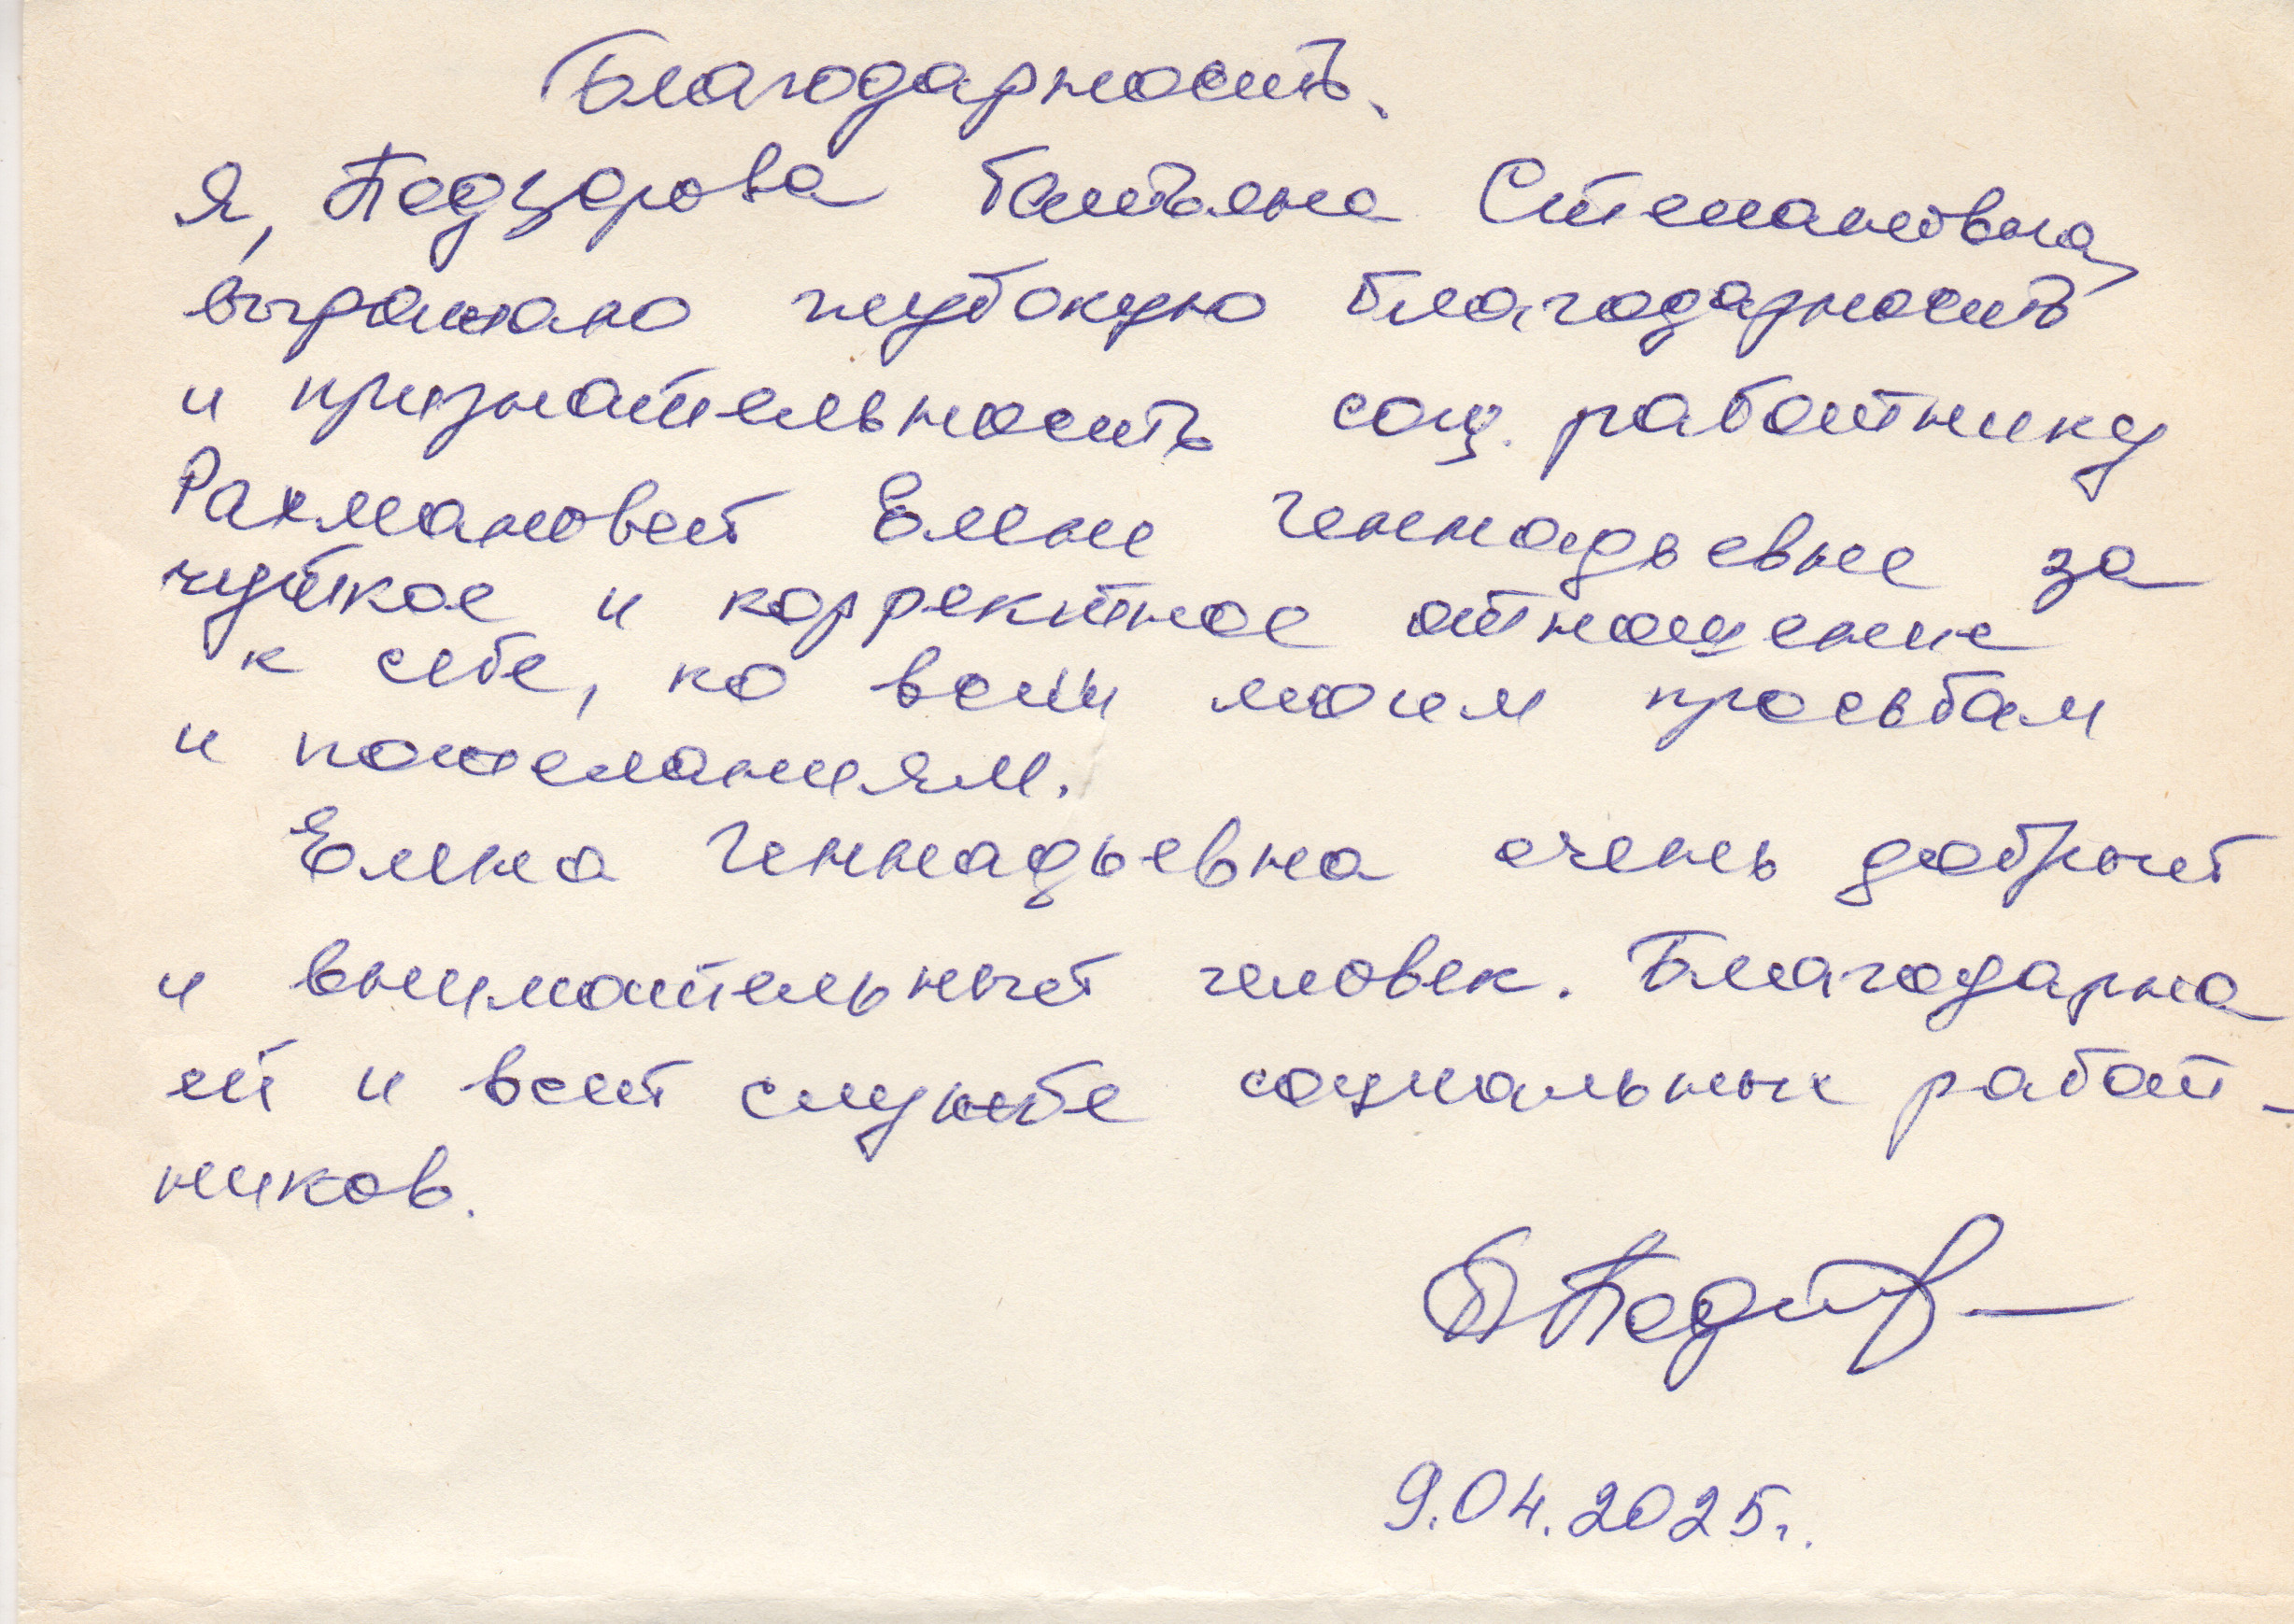 Благодарность.
Я, Татьяна Степановна,
выражаю глубокую благодарность
и признательность соц. работнику
Рахмановой Елене Геннадьевне за
чуткое и корректное отношение
к себе, ко всем моим просьбам
и пожеланиям.
Елена Геннадьевна очень добрый
и внимательный человек. Благодарна
ей и всей службе социальных работ-
ников.
9.04.2025г.